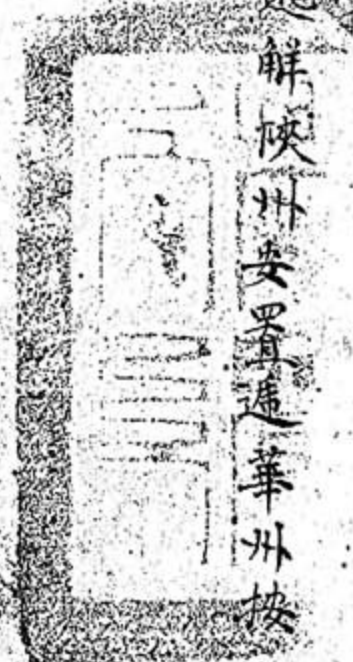 解陝州安置遞華州按